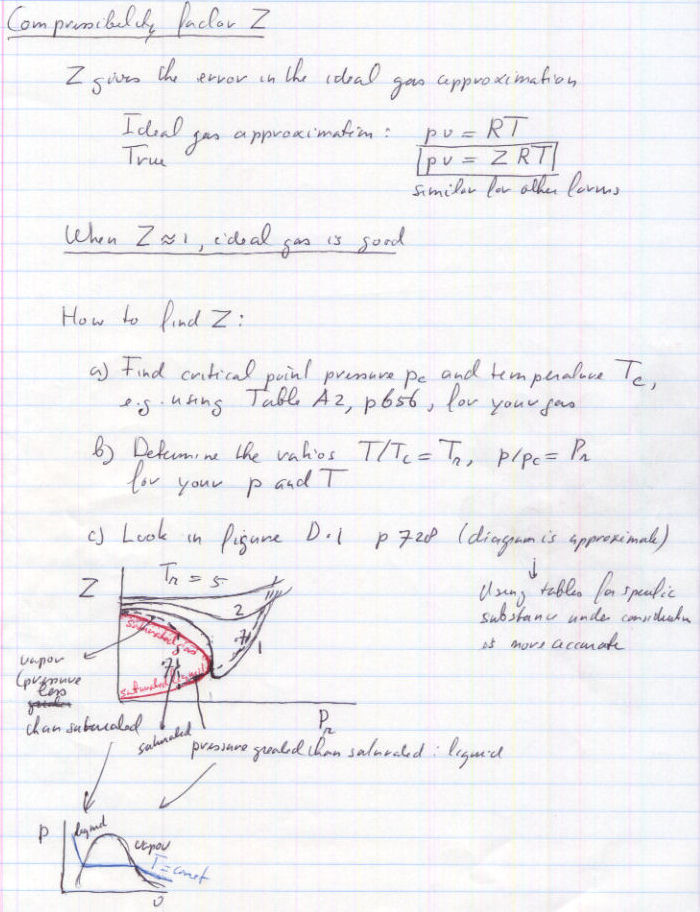 Compressibility factor Z
Z gives the error in the ideal gas approximation
Ideal gas approximation: pv = RT
True pv = Z RT
similar for other forms
When Z ≈ 1, ideal gas is good
How to find Z:
a) Find critical point pressure pc and temperature Tc,
e.g. using Table A2, p656, for your gas
b) Determine the ratios T/Tc = Tr, p/pc = Pr
for your p and T
c) Look in figure D.1 p 728 (diagram is approximate)
Using tables for specific
substance under consideration
is more accurate
Z
Tr = 5
2
.7
1
saturated gas
.7
saturated liquid
vapor
(pressure
less
than saturated
Pr
saturated
pressure greated than saturated: liquid
p
liquid
vapor
T=const
v